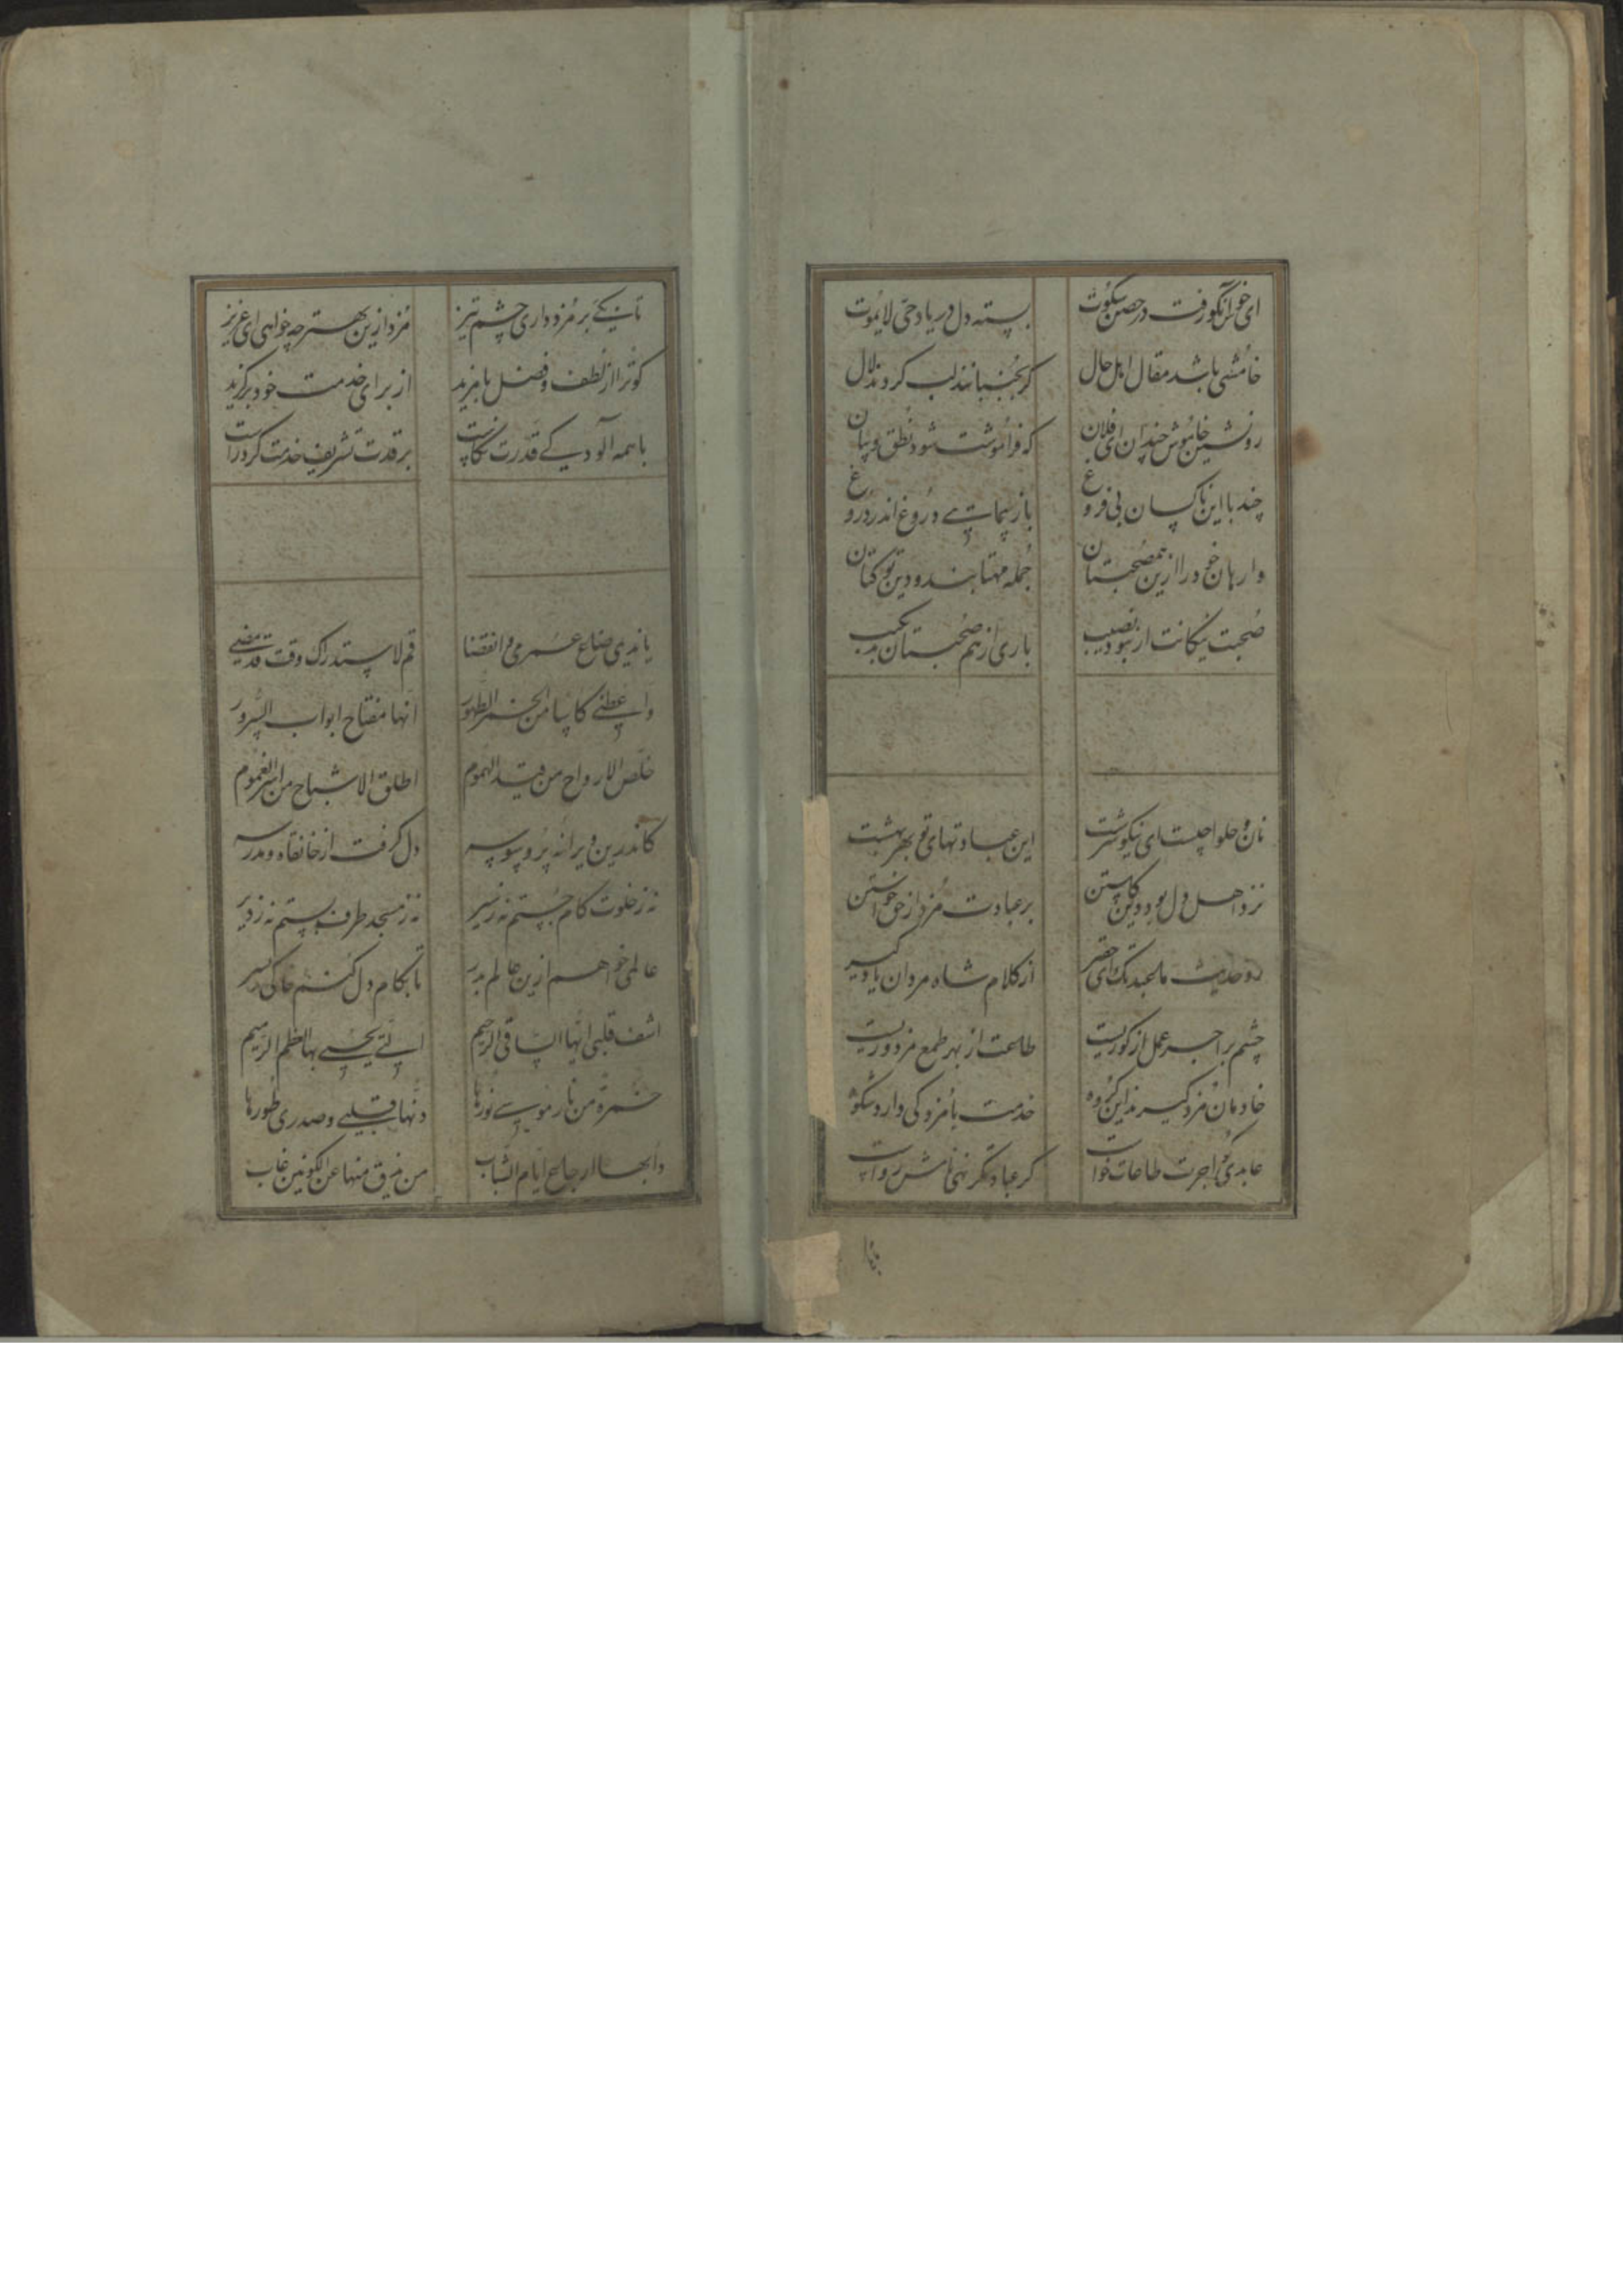 ای خوش آنکو رفت در حصن سکوت بسته دل در یاد حیّ لایموت
خامُشی باشد مقال اهل حال کر بجُنبانند لب کردند لال
رو نشین خاموش چندان ای فلان که فراموشت شود نُطق و بیان
چند با این ناکسان بی فروغ باز پیمائی دروغ اندر دروغ
وارهان خود را ازین همصُحبتان جُمله مهتابند و دین تو کتان
صُحبت نیکانت ار نبود نصیب باری از هم صُحبتان بد شکیب
نان و حلوا چیست ای نیکو سرشت این عبادتهای تو بهر بهشت
نزد اهل دل بود دین کاستن بر عبادت مُزد از حق خواستن
رو حدیث ما عبدتک ای حقیر از کلام شاه مردان یاد گیر
چشم بر اجر عمل از کوریست طاعت از بهر طمع مزدوریست
خادمان مُزد گیرند این گروه خدمت با مُزد کی دارد شکوه
عابدی کو اجرت طاعات خواست کر عبادتکر نهی نامش رواست
تا بکی بر مُزد داری چشم تیز مُزد ازین بهتر چه خواهی ای عزیز
کو ترا از لُطف و فضل با مزید از برای خدمت خود برگزید
با همه آلودگی قدرت نکاست بر قدت تشریف خدمت کرد راست
یا ندیمی ضاع عمری و انقضا قم لاستدراک وقت قد مضی
و اسقنی کاسا من الخمر الطهور انها مفتاح ابواب السرور
خلص الارواح من قید الهموم اطلق الاشباح من اسر الغموم
کاندرین ویرانه پُر وسوسه دل گرفت از خانقاه و مدرسه
نه ز خلوت کام جُستم نه ز سیر نه ز مسجد طرف بستم نه ز دیر
عالمی خواهم ازین عالم بدر تا بکام دل کنم خاکی بسر
اشف قلبی ایها الساقی الرحیم التی یحیی بها العظم الرمیم
خمرة من نار موسی نورها دنها قلبی و صدری طورها
من یذق منها عن الکونین غاب